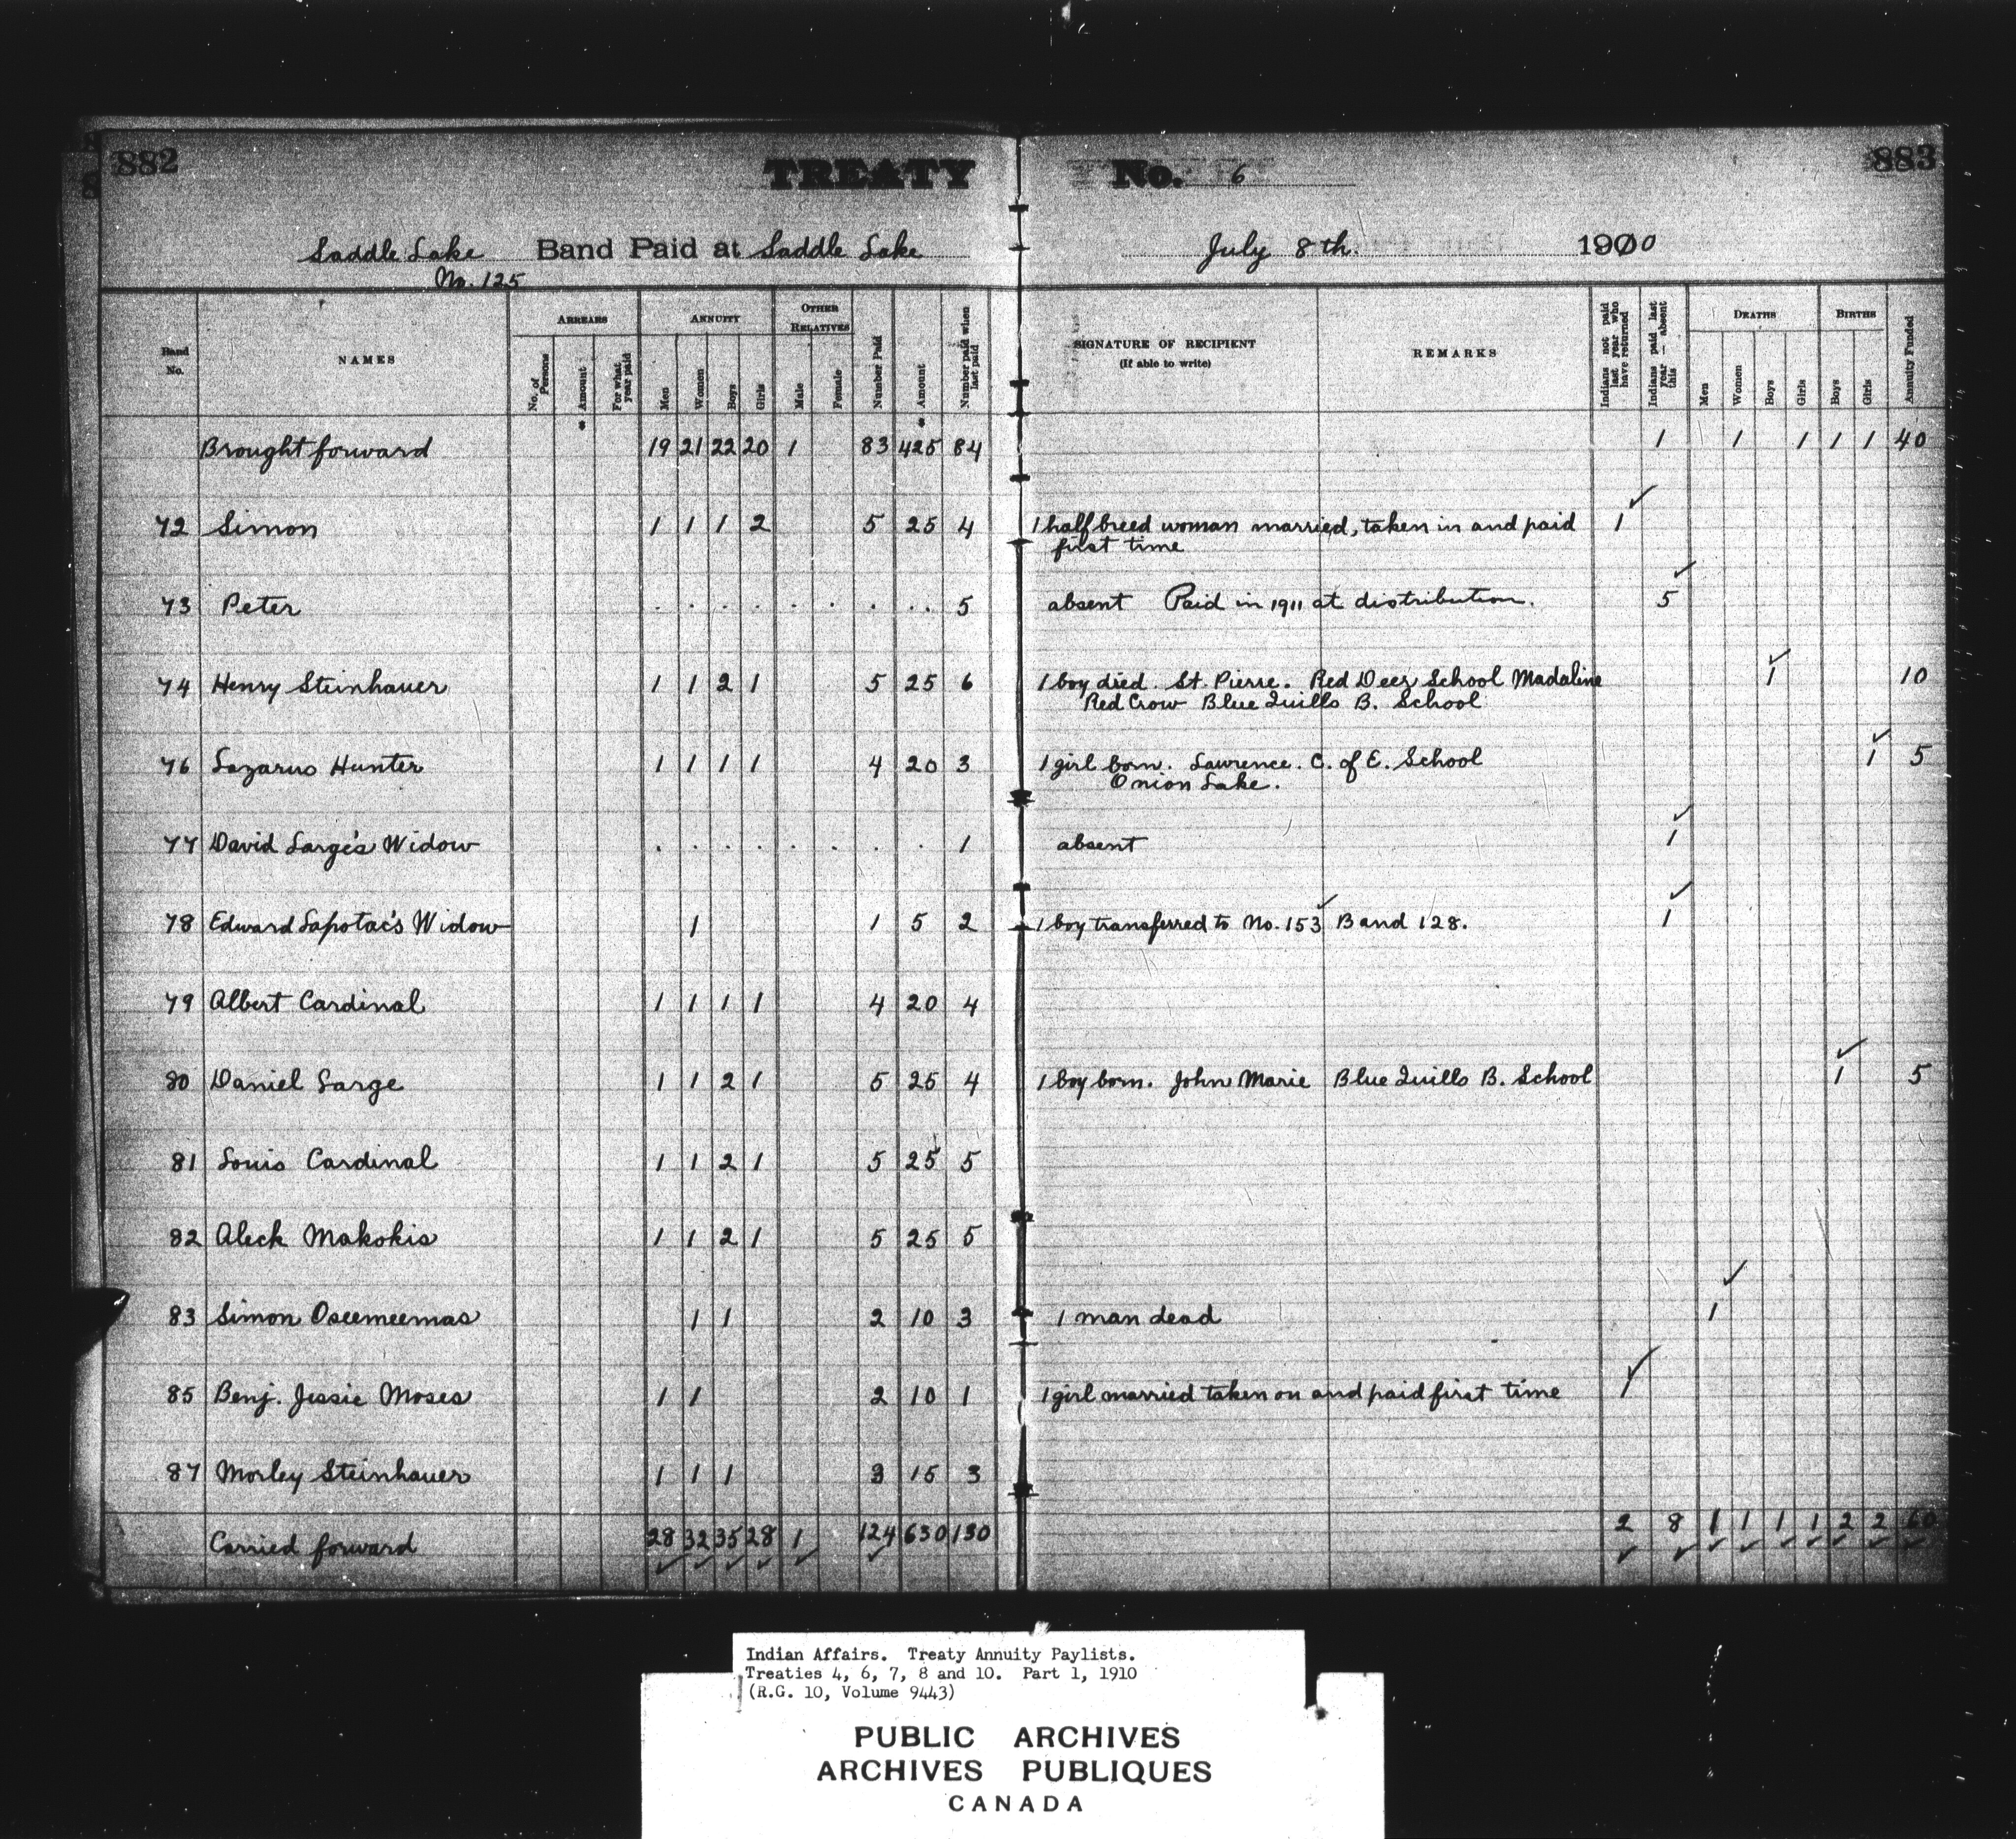 882 TREATY No. 6 883
Saddle Lake Band Paid at Saddle Lake July 8th. 1900
No. 125
Band No. NAMES ARREARS No. of Persons Amount For what year paid ANNUITY Men Women Boys Girls OTHER RELATIVES Male Female Number Paid Amount Number paid when last paid SIGNATURE OF RECIPIENT (If able to write) REMARKS Indians not paid last year who have returned Indians paid last year — absent this DEATHS Men Women Boys Girls BIRTHS Boys Girls Annuity Funded
Brought forward 19 21 22 20 1 83 425 84 1 1 1 1 1 40
72 Simon 1 1 1 2 5 25 4 1 halfbreed woman married, taken in and paid 1
first time
73 Peter . . . . . . . . . 5 absent Paid in 1911 at distribution. 5
74 Henry Steinhauer 1 1 2 1 5 25 6 1 boy died. St. Pierre. Red Deer School Madaline 1 10
Red Crow Blue Quills B. School
76 Lazarus Hunter 1 1 1 1 4 20 3 1 girl born. Lawrence. C. of E. School 1 5
Onion Lake.
77 David Large's Widow . . . . . . . . 1 absent 1
78 Edward Lapotac's Widow 1 1 5 2 1 boy transferred to No. 153 Band 128. 1
79 Albert Cardinal 1 1 1 1 4 20 4
80 Daniel Large 1 1 2 1 5 25 4 1 boy born. John Marie Blue Quills B. School 1 5
81 Louis Cardinal 1 1 2 1 5 25 5
82 Aleck Makokis 1 1 2 1 5 25 5
83 Simon Oseemeemas 1 1 2 10 3 1 man dead 1
85 Benj. Jessie Moses 1 1 2 10 1 1 girl married taken on and paid first time 1
87 Morley Steinhauer 1 1 1 3 15 3
Carried forward 28 32 35 28 1 124 630 130 2 8 1 1 1 1 2 2 60
Indian Affairs. Treaty Annuity Paylists.
Treaties 4, 6, 7, 8 and 10. Part 1, 1910
(R.G. 10, Volume 9443)
PUBLIC ARCHIVES
ARCHIVES PUBLIQUES
CANADA